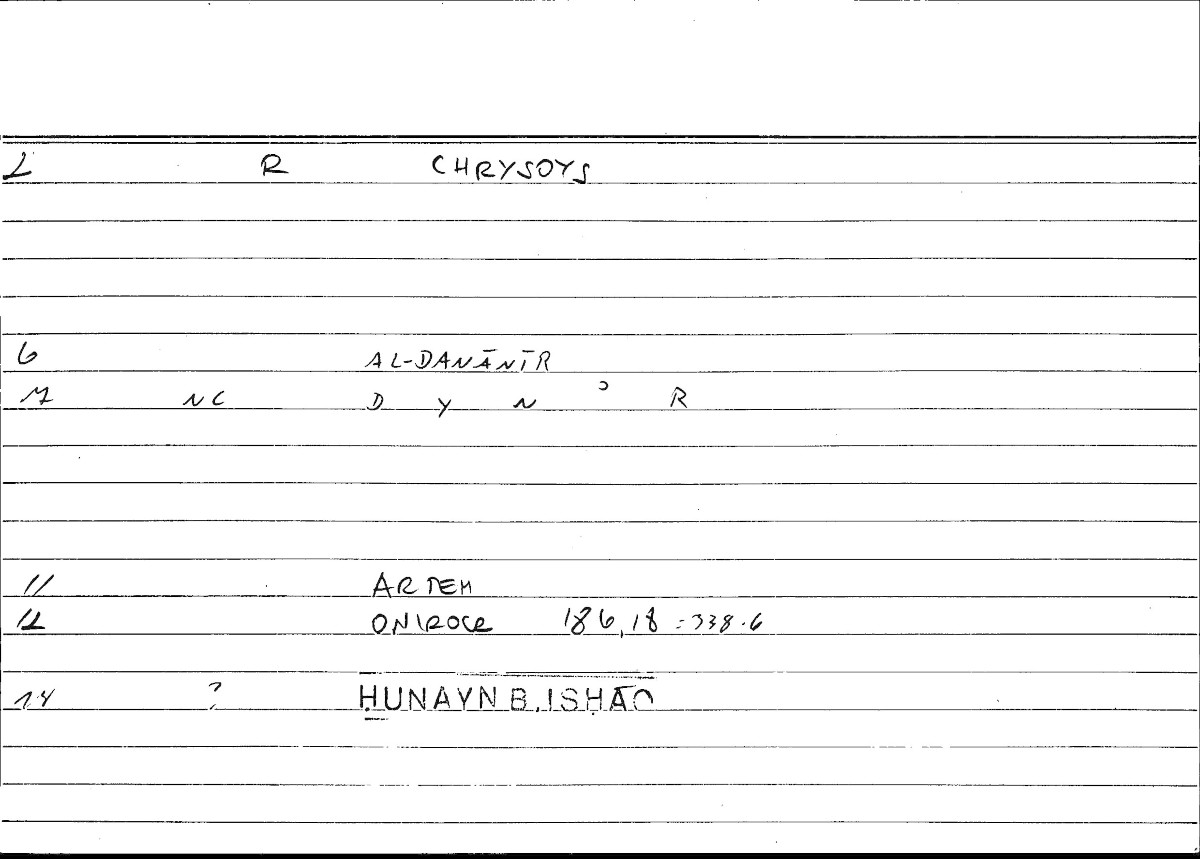 2 R CHRYSOYS
6 AL-DANĀNĪR
7 NC D Y N ʾ R
11 ARTEM
12 ONIROCR 186,18 = 338.6
14 ? ḤUNAYN B. ISḤĀQ